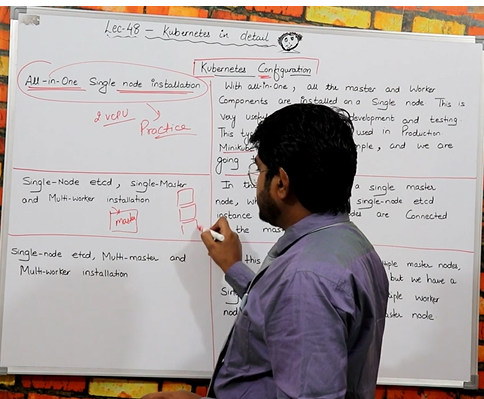 Lec-48 – Kubernetes in detail
Kubernetes Configuration
All-in-One Single node installation
2 vCPU
Practice
With all-in-one, all the master and Worker
Components are installed on a Single node This is
very development and testing.
This used in Production
Minikube and we are
going
Single-Node etcd, single-Master
and Multi-worker installation
master
In a single master
node, single-node etcd
instance are Connected
the
Single-node etcd, Multi-master and
Multi-worker installation
this master nodes,
but we have a
worker
node